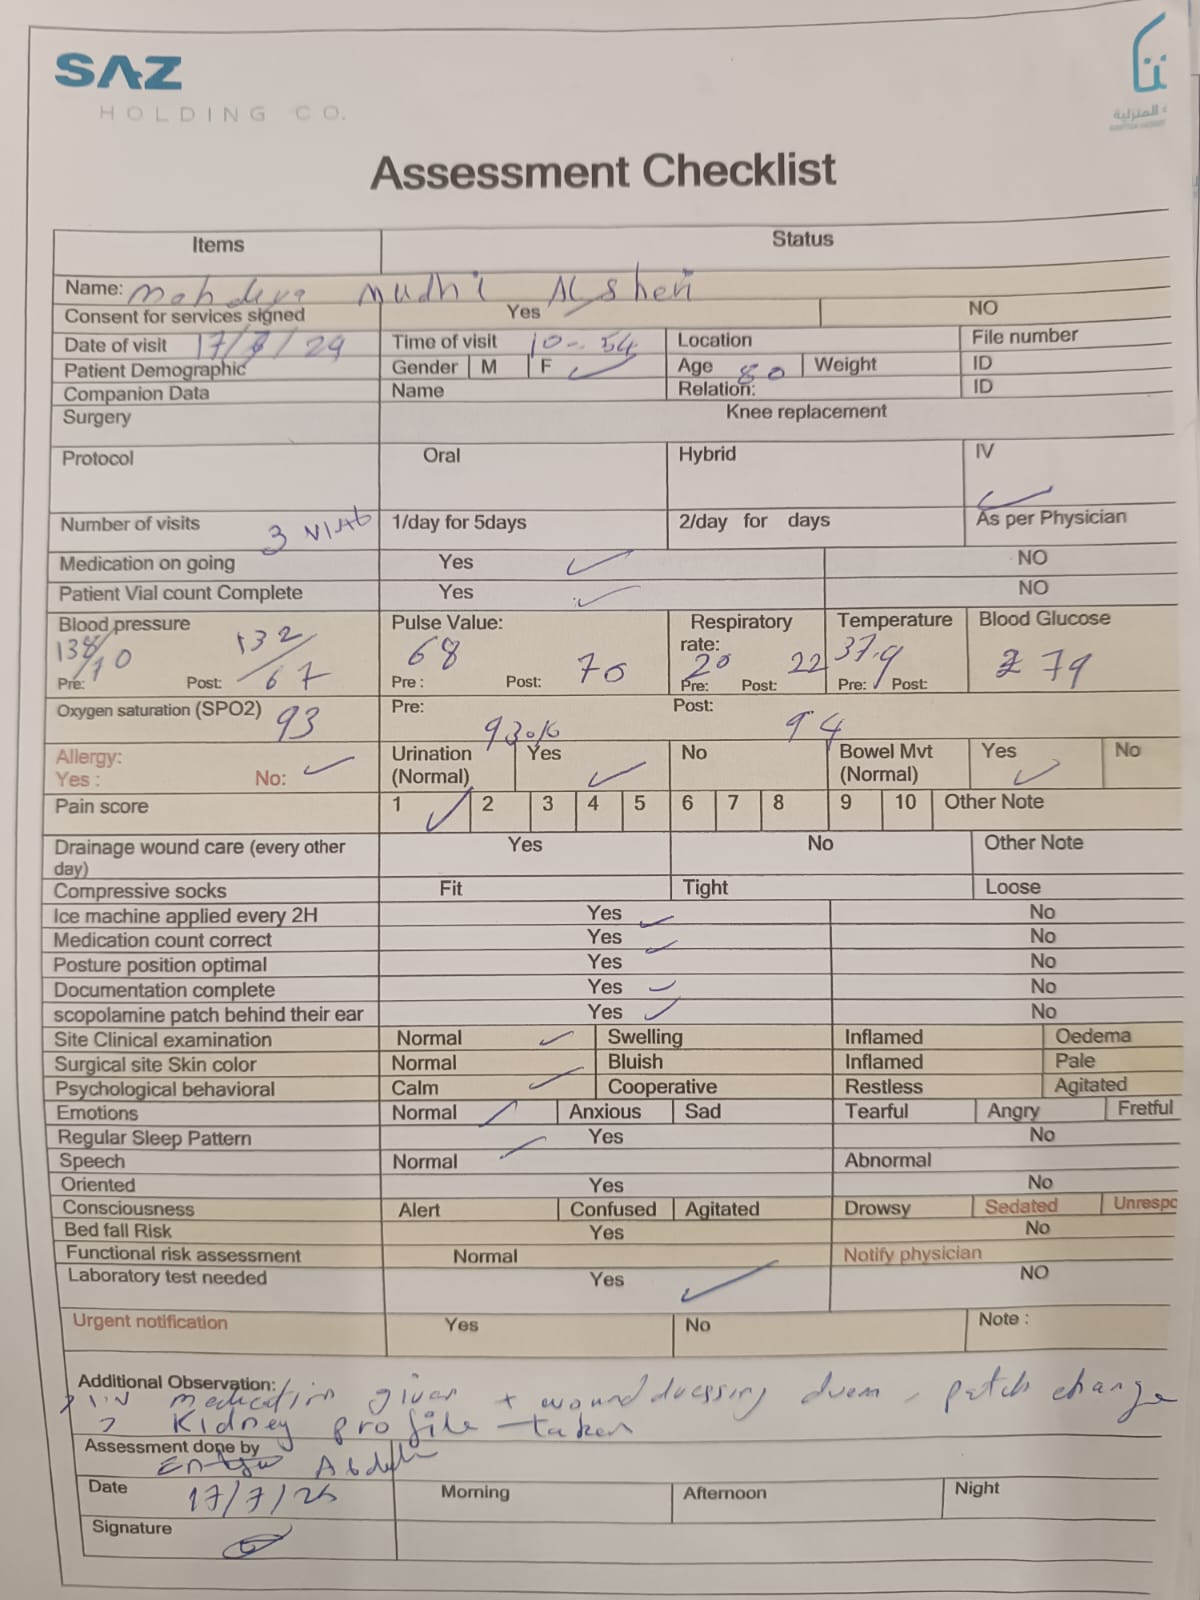 SAZ
HOLDING CO.
المنزلية
Assessment Checklist
Items Status
Name: Mudhi Al sheri
Consent for services signed Yes NO
Date of visit 17/7/ Time of visit 10 54 Location File number
Patient Demographic Gender M F ✓ Age 80 Weight ID
Companion Data Name Relation: ID
Surgery Knee replacement
Protocol Oral Hybrid IV ✓
Number of visits 3 1/day for 5days 2/day for days As per Physician
Medication on going Yes ✓ NO
Patient Vial count Complete Yes ✓ NO
Blood pressure Pulse Value: Respiratory rate: Temperature Blood Glucose
Pre: Post: 132/67 Pre: 68 Post: 70 Pre: 20 Post: 22 37.9 Pre: / Post: 79
Oxygen saturation (SPO2) 93 Pre: 93% Post: 94
Allergy: Urination (Normal) Yes ✓ No Bowel Mvt (Normal) Yes ✓ No
Yes : No: ✓
Pain score 1 ✓ 2 3 4 5 6 7 8 9 10 Other Note
Drainage wound care (every other day) Yes No Other Note
Compressive socks Fit Tight Loose
Ice machine applied every 2H Yes ✓ No
Medication count correct Yes ✓ No
Posture position optimal Yes No
Documentation complete Yes ✓ No
scopolamine patch behind their ear Yes ✓ No
Site Clinical examination Normal ✓ Swelling Inflamed Oedema
Surgical site Skin color Normal Bluish Inflamed Pale
Psychological behavioral Calm ✓ Cooperative Restless Agitated
Emotions Normal ✓ Anxious Sad Tearful Angry Fretful
Regular Sleep Pattern Yes No
Speech Normal ✓ Abnormal
Oriented Yes No
Consciousness Alert Confused Agitated Drowsy Sedated Unrespo
Bed fall Risk Yes No
Functional risk assessment Normal Notify physician
Laboratory test needed Yes ✓ NO
Urgent notification Yes No Note :
Additional Observation:
medication given + wound dressing , patch change
Kidney profile taken
Assessment done by
Date 17/7/ Morning Afternoon Night
Signature